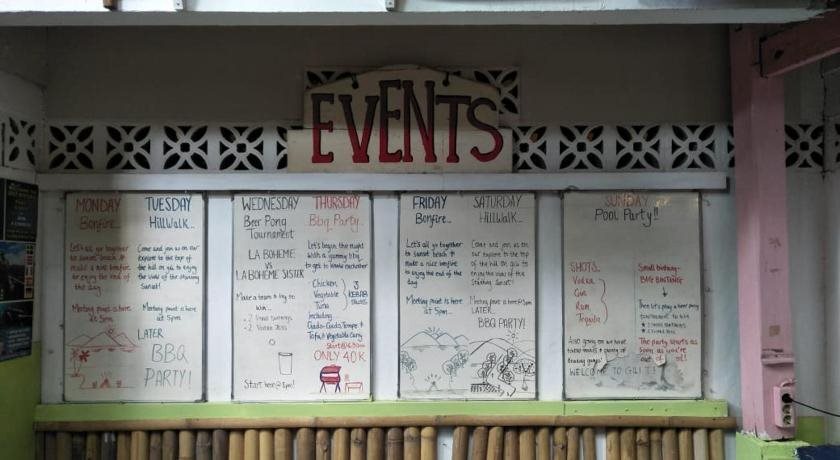 EVENTS
MONDAY
Bonfire...
Let's all go together
to sunset beach &
make a nice bonfire
to enjoy the end of
the day.
Meeting point is here
at 5pm.
TUESDAY
HillWalk...
Come and join us on our
explore to the top of
the hill on gili to enjoy
the view of the stunning
sunset!
Meeting point is here
at 5pm.
LATER
BBQ
PARTY!
WEDNESDAY
Beer Pong
Tournament
LA BOHEME
VS
LA BOHEME SISTER
Make a team & try to
win...
Start here @ 8pm!
THURSDAY
Bbq Party...
Let's begin the night
with a yummy bbq
to get to know eachother
Chicken,
Vegetable
Tuna
3
KEBAB
Including
Gado-Gado, Tempe &
Tofu & Vegetable Curry
ONLY 40K
FRIDAY
Bonfire...
Let's all go together
to sunset beach &
make a nice bonfire
to enjoy the end of the
day.
Meeting point is here
at 5pm.
SATURDAY
HillWalk...
Come and join us on our
explore to the top of
the hill on gili to
enjoy the view of the
stunning sunset!
Meeting point is here
LATER...
BBQ PARTY!
SUNDAY
Pool Party!!
SHOTS.
Vodka
Gin
Rum
Tequila
Then let's play a beer pong
tournament to win
The party starts as
soon as you're
WELCOME TO GILI T!